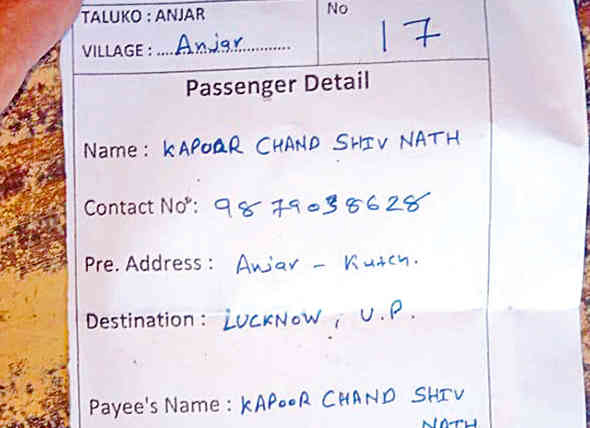 TALUKO : ANJAR
No
VILLAGE : .... Anjar ............
17
Passenger Detail
Name : KAPOOR CHAND SHIV NATH
Contact No: 9879038628
Pre. Address : Anjar - Kutch.
Destination : LUCKNOW, U.P.
Payee's Name : KAPOOR CHAND SHIV
NATH